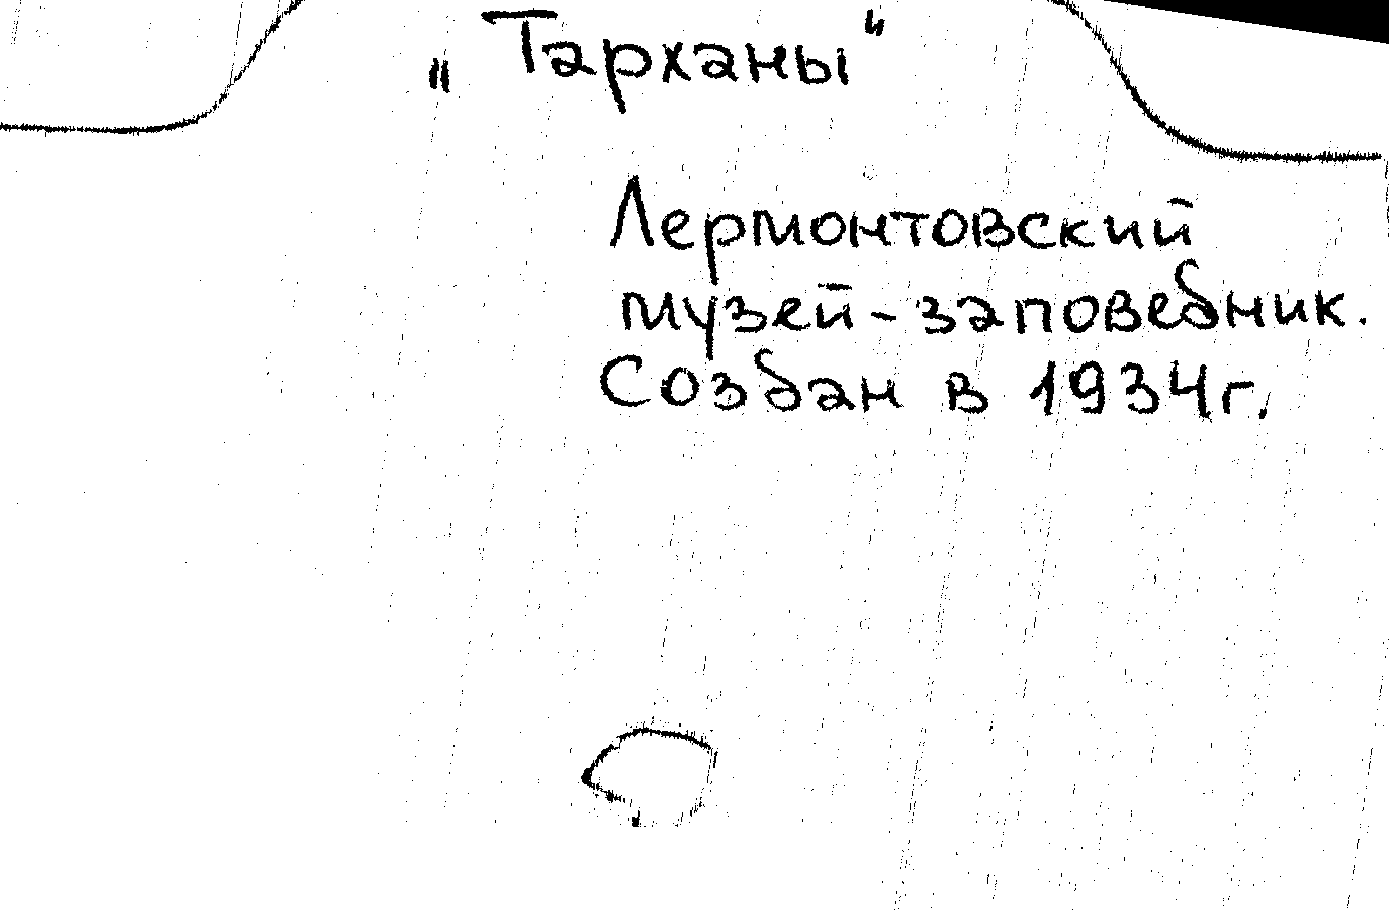 "Тарханы"
Лермонтовский
музей-заповедник.
Создан в 1934г.